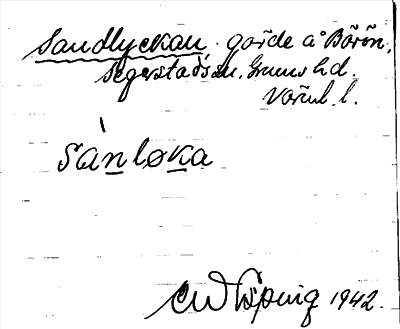 Sandlyckan, gärde å Börön,
Segerstads sn. Grums hd.
Värml. l.
sànløka
1942.